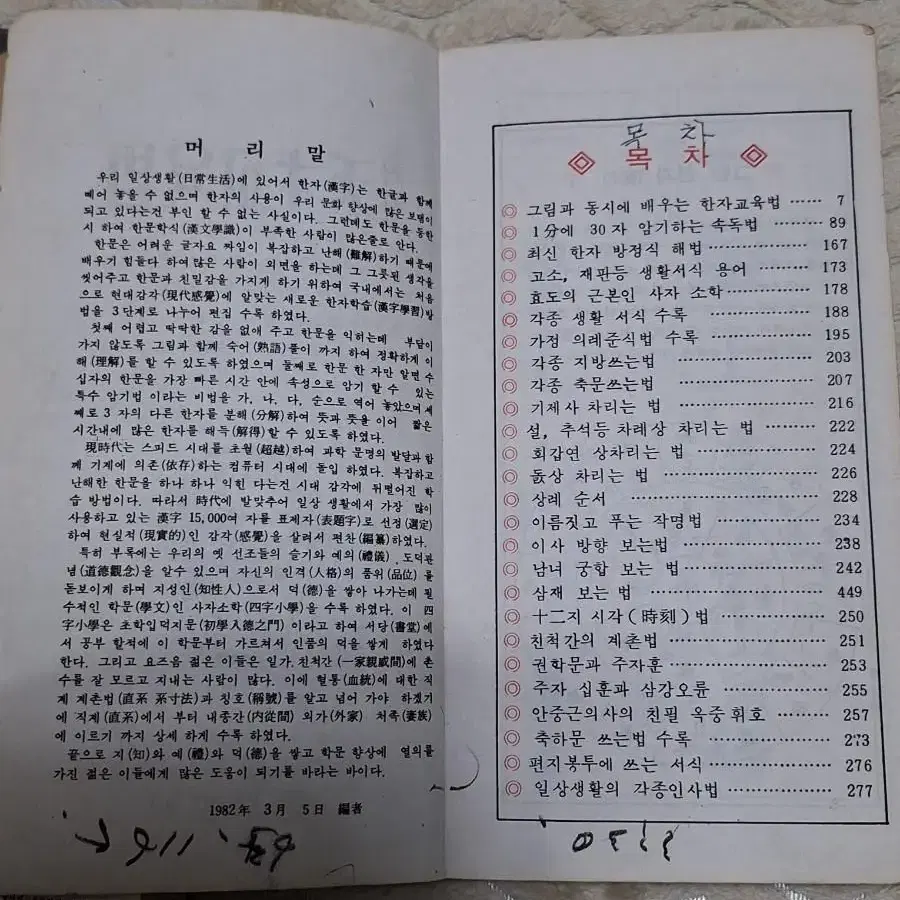 머 리 말
우리 일상생활(日常生活)에 있어서 한자(漢字)는 한글과 함께
빼어 놓을 수 없으며 한자의 사용이 우리 문화 향상에 많은 보탬이
되고 있다는건 부인 할 수 없는 사실이다. 그런데도 한문을 등한
시 하여 한문학식(漢文學識)이 부족한 사람이 많은줄로 안다.
한문은 어려운 글자요 짜임이 복잡하고 난해(難解)하기 때문에
배우기 힘들다 하여많은 사람이 외면을 하는데 그 그릇된 생각을
씻어주고 한문과 친밀감을 가지게 하기 위하여 국내에서는 처음
으로 현대감각(現代感覺)에 알맞는 새로운 한자학습(漢字學習)방
법을 3단계로 나누어 편집 수록 하였다.
첫째 어렵고 딱딱한 감을 없애 주고 한문을 익히는데 부담이
가지 않도록 그림과 함께 숙어(熟語)풀이 까지 하여 정확하게 이
해(理解)를 할 수 있도록 하였으며 둘째로 한문 한 자만 알면 수
십자의 한문을 가장 빠른 시간 안에 속성으로 암기 할 수 있는
특수 암기법 이라는 비법을 가, 나, 다, 순으로 엮어 놓았으며 세
째로 3 자의 다른 한자를 분해(分解)하여 뜻과 뜻을 이어 짧은
시간내에 많은 한자를 해득(解得)할 수 있도록 하였다.
現時代는 스피드 시대를 초월(超越)하여 과학 문명의 발달과 함
께 기계에 의존(依存)하는 컴퓨터 시대에 돌입 하였다. 복잡하고
난해한 한문을 하나 하나 익힌 다는건 시대 감각에 뒤떨어진 학
습 방법이다. 따라서 時代에 발맞추어 일상 생활에서 가장 많이
사용하고 있는 漢字 15,000여 자를 표제자(表題字)로 선정(選定)
하여 현실적(現實的)인 감각(感覺)을 살려서 편찬(編纂)하였다.
특히 부록에는 우리의 옛 선조들의 슬기와 예의(禮儀), 도덕관
념(道德觀念)을 알수 있으며 자신의 인격(人格)의 품위(品位)를
돋보이게 하며 지성인(知性人)으로서 덕(德)을 쌓아 나가는데 필
수적인 학문(學文)인 사자소학(四字小學)을 수록 하였다. 이 四
字小學은 초학입덕지문(初學入德之門)이라고 하여 서당(書堂)에
서 공부 할적에 이 학문부터 가르쳐서 인품의 덕을 쌓게 하였다
한다. 그리고 요즈음 젊은 이들은 일가.친척간(一家親戚間)에 촌
수를 잘 모르고 지내는 사람이 많다. 이에 혈통(血統)에 대한 직
계 계촌법(直系 系寸法)과 칭호(稱號)를 알고 넘어 가야 하겠기
에 직계(直系)에서 부터 내종간(内從間) 외가(外家) 처족(妻族)
에 이르기 까지 상세 하게 수록 하였다.
끝으로 지(知)와 예(禮)와 덕(德)을 쌓고 학문 향상에 열의를
가진 젊은 이들에게 많은 도움이 되기를 바라는 바이다.
1982年 3月 5日 編者
목 차
목 차
그림과 동시에 배우는 한자교육법 …… 7
1分에 30자 암기하는 속독법 …… 89
최신 한자 방정식 해법 …… 167
고소, 재판등 생활서식 용어 …… 173
효도의 근본인 사자 소학 …… 178
각종 생활 서식 수록 …… 188
가정 의례준식법 수록 …… 195
각종 지방쓰는법 …… 203
각종 축문쓰는법 …… 207
기제사 차리는 법 …… 216
설, 추석등 차례상 차리는 법 …… 222
회갑연 상차리는 법 …… 224
돐상 차리는 법 …… 226
상례 순서 …… 228
이름짓고 푸는 작명법 …… 234
이사 방향 보는법 …… 238
남녀 궁합 보는 법 …… 242
삼재 보는 법 …… 449
十二지 시각(時刻)법 …… 250
친척간의 계촌법 …… 251
권학문과 주자훈 …… 253
주자 십훈과 삼강오륜 …… 255
안중근의사의 친필 옥중휘호 …… 257
축하문 쓰는법 수록 …… 273
편지봉투에 쓰는 서식 …… 276
일상생활의 각종인사법 …… 277